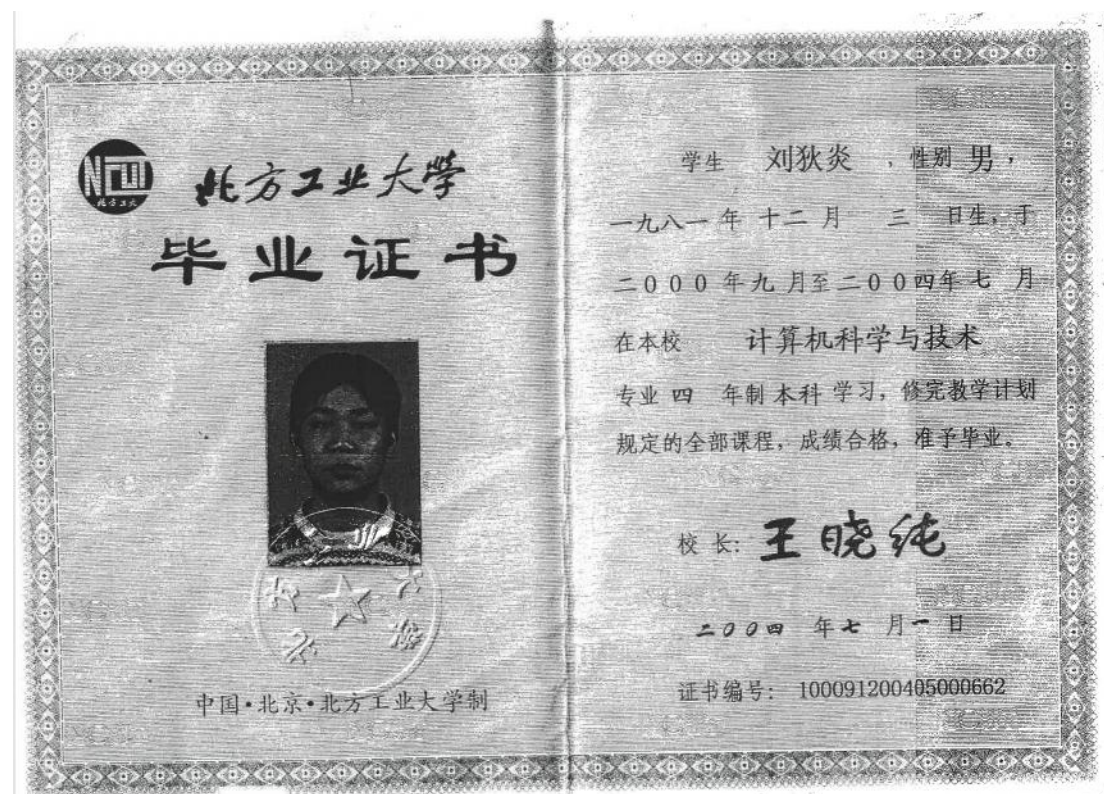 NCUT
北方工大
北方工业大学
毕业证书
中国·北京·北方工业大学制
学生 刘狄炎 ,性别 男,
一九八一年 十二 月 三 日生,于
二000年九月至二00四年七 月
在本校 计算机科学与技术
专业 四 年制 本科 学习,修完教学计划
规定的全部课程,成绩合格,准予毕业。
校长: 王晓纯
二00四 年七 月一 日
证书编号: 100091200405000662